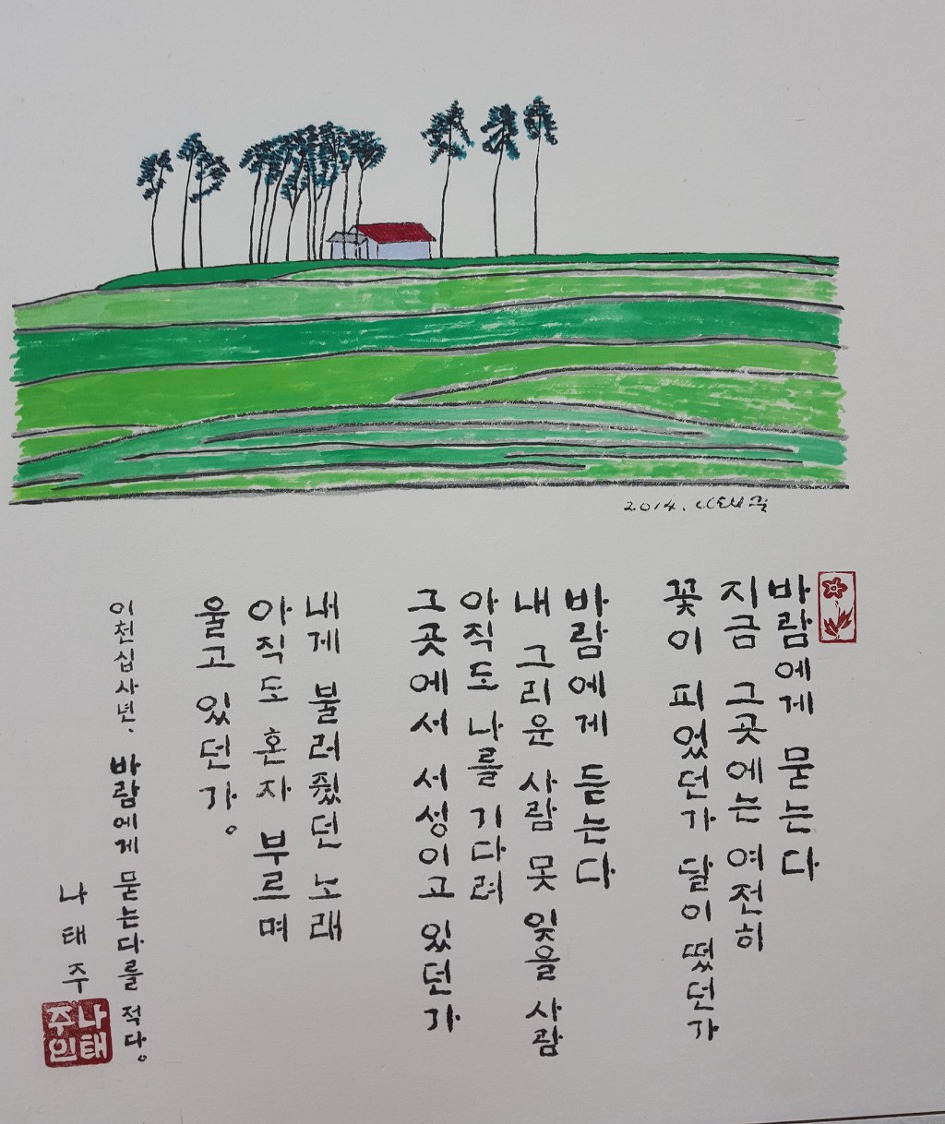 2014. 나태주
바람에게 묻는다
지금 그곳에는 여전히
꽃이 피었던가 달이 떴던가
바람에게 듣는다
내 그리운 사람 못 잊을 사람
아직도 나를 기다려
그곳에서 서성이고 있던가
내게 불러줬던 노래
아직도 혼자 부르며
울고 있던가.
이천십사년. 바람에게 묻는다를 적다.
나태주
나태주인